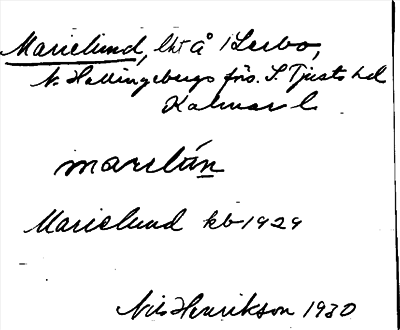 Marielund, lht å Lerbo,
V. Hallingebergs förs. S. Tjusts hd
Kalmar l.
marelún
Marielund kb 1929
Nils Henrikson 1930